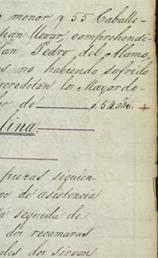 y menor y 55 Caballe-
han llevar, comprehendi-
San Pedro del Alamo,
s no habiendo sufrido
acreditan los Mayordo-
or de $ 54.000. +
lina:
piezas siguien-
no de asistencia
n seguida de
dos recamaras
ales dos sirven